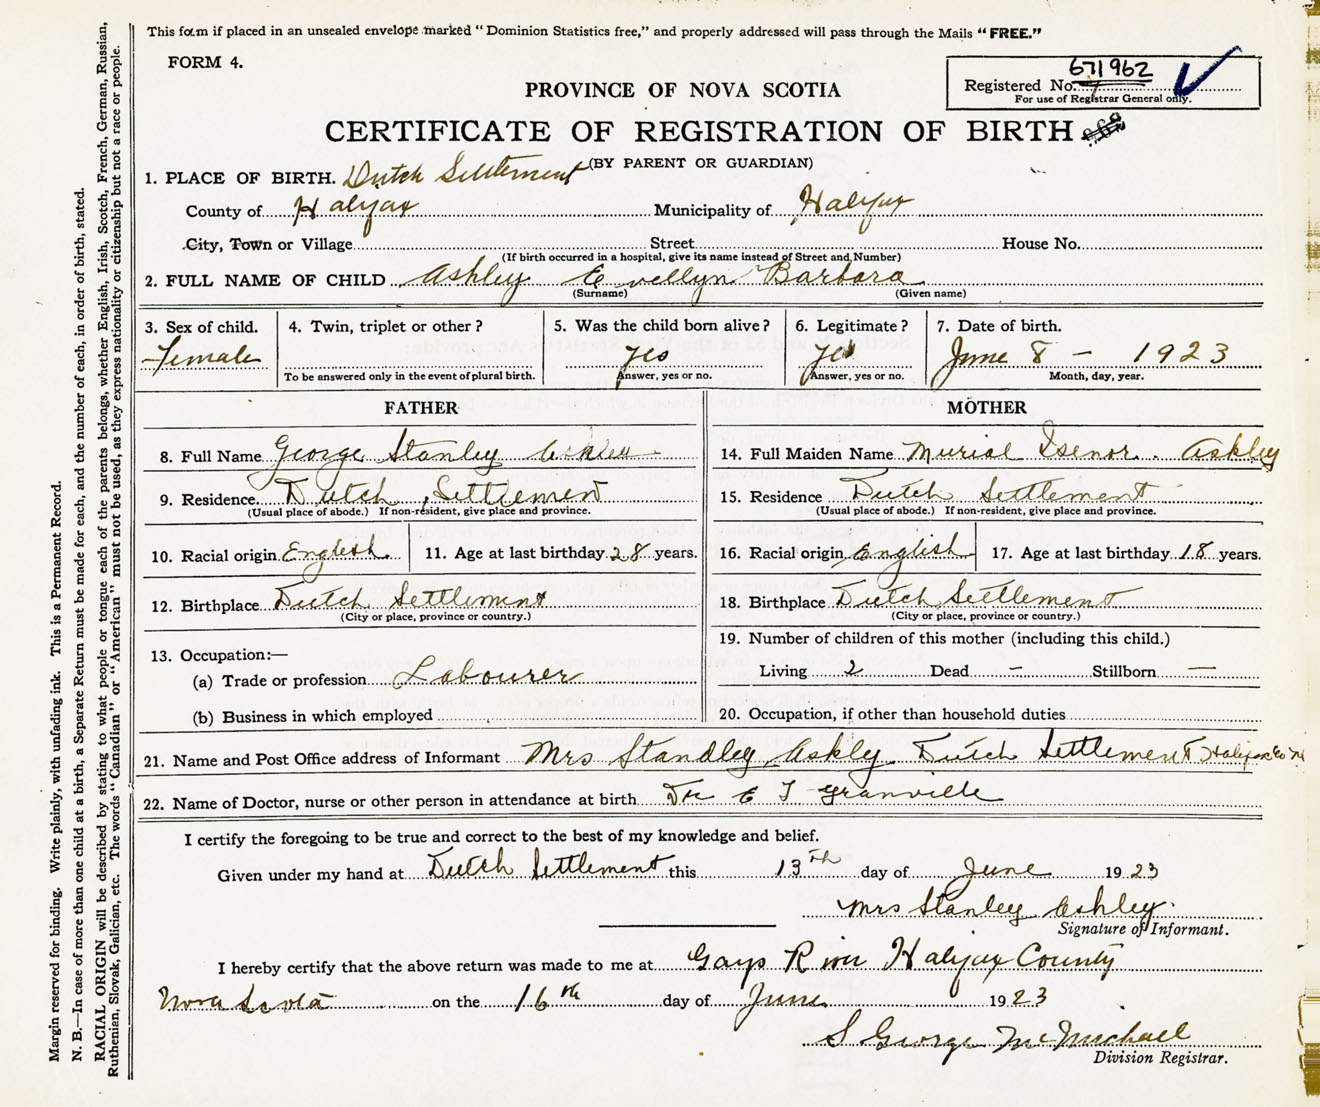 This form if placed in an unsealed envelope marked "Dominion Statistics free," and properly addressed will pass through the Mails "FREE."
FORM 4.
671962
Registered No.
For use of Registrar General only.
PROVINCE OF NOVA SCOTIA
CERTIFICATE OF REGISTRATION OF BIRTH
(BY PARENT OR GUARDIAN)
1. PLACE OF BIRTH. Dutch Settlement
County of Halifax Municipality of Halifax
City, Town or Village Street House No.
(If birth occurred in a hospital, give its name instead of Street and Number)
2. FULL NAME OF CHILD Ashley Evellyn Barbara
(Surname) (Given name)
3. Sex of child. 4. Twin, triplet or other? 5. Was the child born alive? 6. Legitimate? 7. Date of birth.
Female yes yes June 8 - 1923
To be answered only in the event of plural birth. Answer, yes or no. Answer, yes or no. Month, day, year.
FATHER MOTHER
8. Full Name George Stanley 14. Full Maiden Name Murial Isenor. Ashley
9. Residence. Dutch Settlement 15. Residence Dutch Settlement
(Usual place of abode.) If non-resident, give place and province. (Usual place of abode.) If non-resident, give place and province.
10. Racial origin English 11. Age at last birthday 28 years. 16. Racial origin English 17. Age at last birthday 18 years.
12. Birthplace Dutch Settlement 18. Birthplace Dutch Settlement
(City or place, province or country.) (City or place, province or country.)
19. Number of children of this mother (including this child.)
13. Occupation:—
Living 2 Dead - Stillborn —
(a) Trade or profession Labourer
(b) Business in which employed 20. Occupation, if other than household duties
21. Name and Post Office address of Informant Mrs Standley Ashly Dutch Settlement Halifax Co
22. Name of Doctor, nurse or other person in attendance at birth Dr E T Granville
I certify the foregoing to be true and correct to the best of my knowledge and belief.
Given under my hand at Dutch Settlement this 13th day of June 1923
Mrs Stanley Ashley.
Signature of Informant.
I hereby certify that the above return was made to me at Gays River Halifax County
Nova Scotia on the 16th day of June 1923
S George McMichael
Division Registrar.
Margin reserved for binding. Write plainly, with unfading ink. This is a Permanent Record.
N. B.—In case of more than one child at a birth, a Separate Return must be made for each, and the number of each, in order of birth, stated.
RACIAL ORIGIN will be described by stating to what people or tongue each of the parents belongs, whether English, Irish, Scotch, French, German, Russian,
Ruthenian, Slovak, Galician, etc. The words "Canadian" or "American" must not be used, as they express nationality or citizenship but not a race or people.